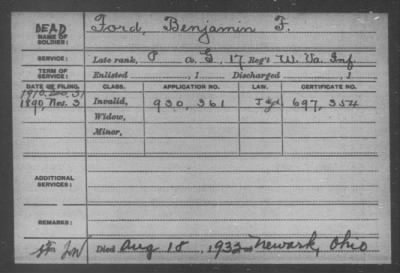 DEAD
NAME OF SOLDIER: Ford, Benjamin F.
SERVICE: Late rank, P Co. G, 17 Reg't W. Va. Inf.
TERM OF SERVICE: Enlisted , 1 Discharged , 1
DATE OF FILING. CLASS. APPLICATION NO. LAW. CERTIFICATE NO.
1910, Dec. 31
1890, Nov. 3 Invalid, 930,361 697,354
Widow,
Minor,
ADDITIONAL SERVICES:
REMARKS:
Died Aug 18, 1932 Newark, Ohio